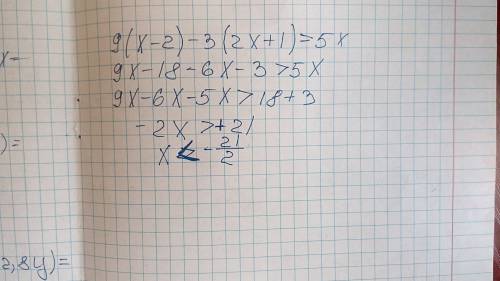 x-
9(x-2)-3(2x+1)>5x
9x-18-6x-3>5x
9x-6x-5x>18+3
)=
-2x>+21
x<-21/2
2,8y)=